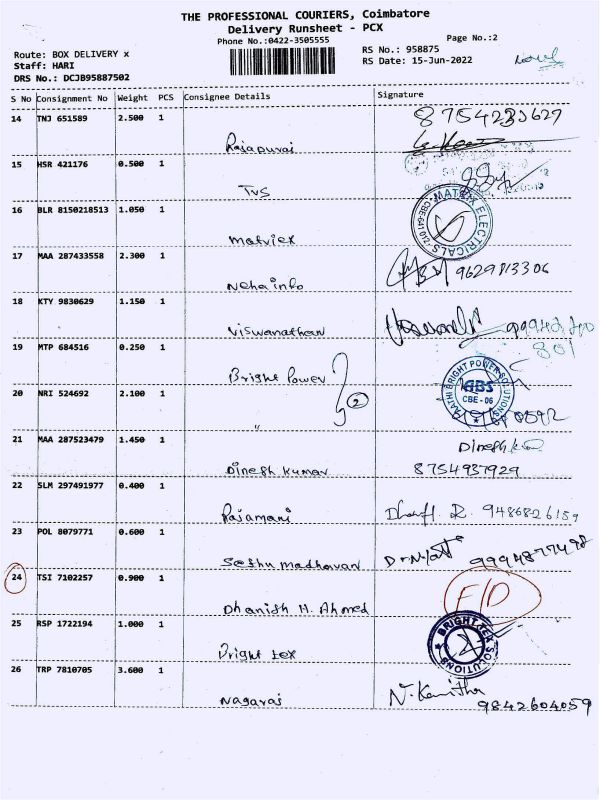 THE PROFESSIONAL COURIERS, Coimbatore
Delivery Runsheet - PCX
Phone No.:0422-3505555
Page No.:2
Route: BOX DELIVERY x
RS No.: 958875
Staff: HARI
RS Date: 15-Jun-2022
DRS No.: DCJB95887502
S No Consignment No Weight PCS Consignee Details Signature
14 TNJ 651589 2.500 1
Rajapurai
15 HSR 421176 0.500 1
TVS
16 BLR 8150218513 1.050 1
MATRIX ELECTRICALS
CBE-641 012
17 MAA 287433558 2.300 1
Neha info 9629813306
18 KTY 9830629 1.150 1
Viswanathan
19 MTP 684516 0.250 1
Bright Power
20 NRI 524692 2.100 1
2
"
AATHI BRIGHT POWER SOLUTIONS
ABS
CBE - 06
21 MAA 287523479 1.450 1
Dinesh Kumar 8754937929
22 SLM 297491977 0.400 1
Rajamani 9486826159
23 POL 8079771 0.600 1
Seshu madhavan
24 TSI 7102257 0.900 1
Dhanish H. Ahmed F/D
25 RSP 1722194 1.000 1
Bright tex
BRIGHT TEX SOLUTIONS
26 TRP 7810705 3.600 1
Nagaraj N. Kavitha
9842604059